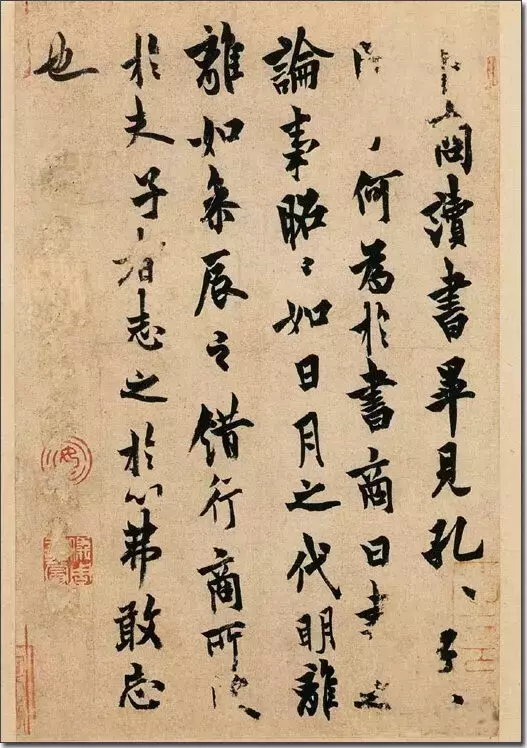 卜商讀書畢見孔〻子〻
何為於書商曰書之
論事昭〻如日月之代明離
離如参辰之錯行商所受
於夫子者志之於心弗敢忘
也